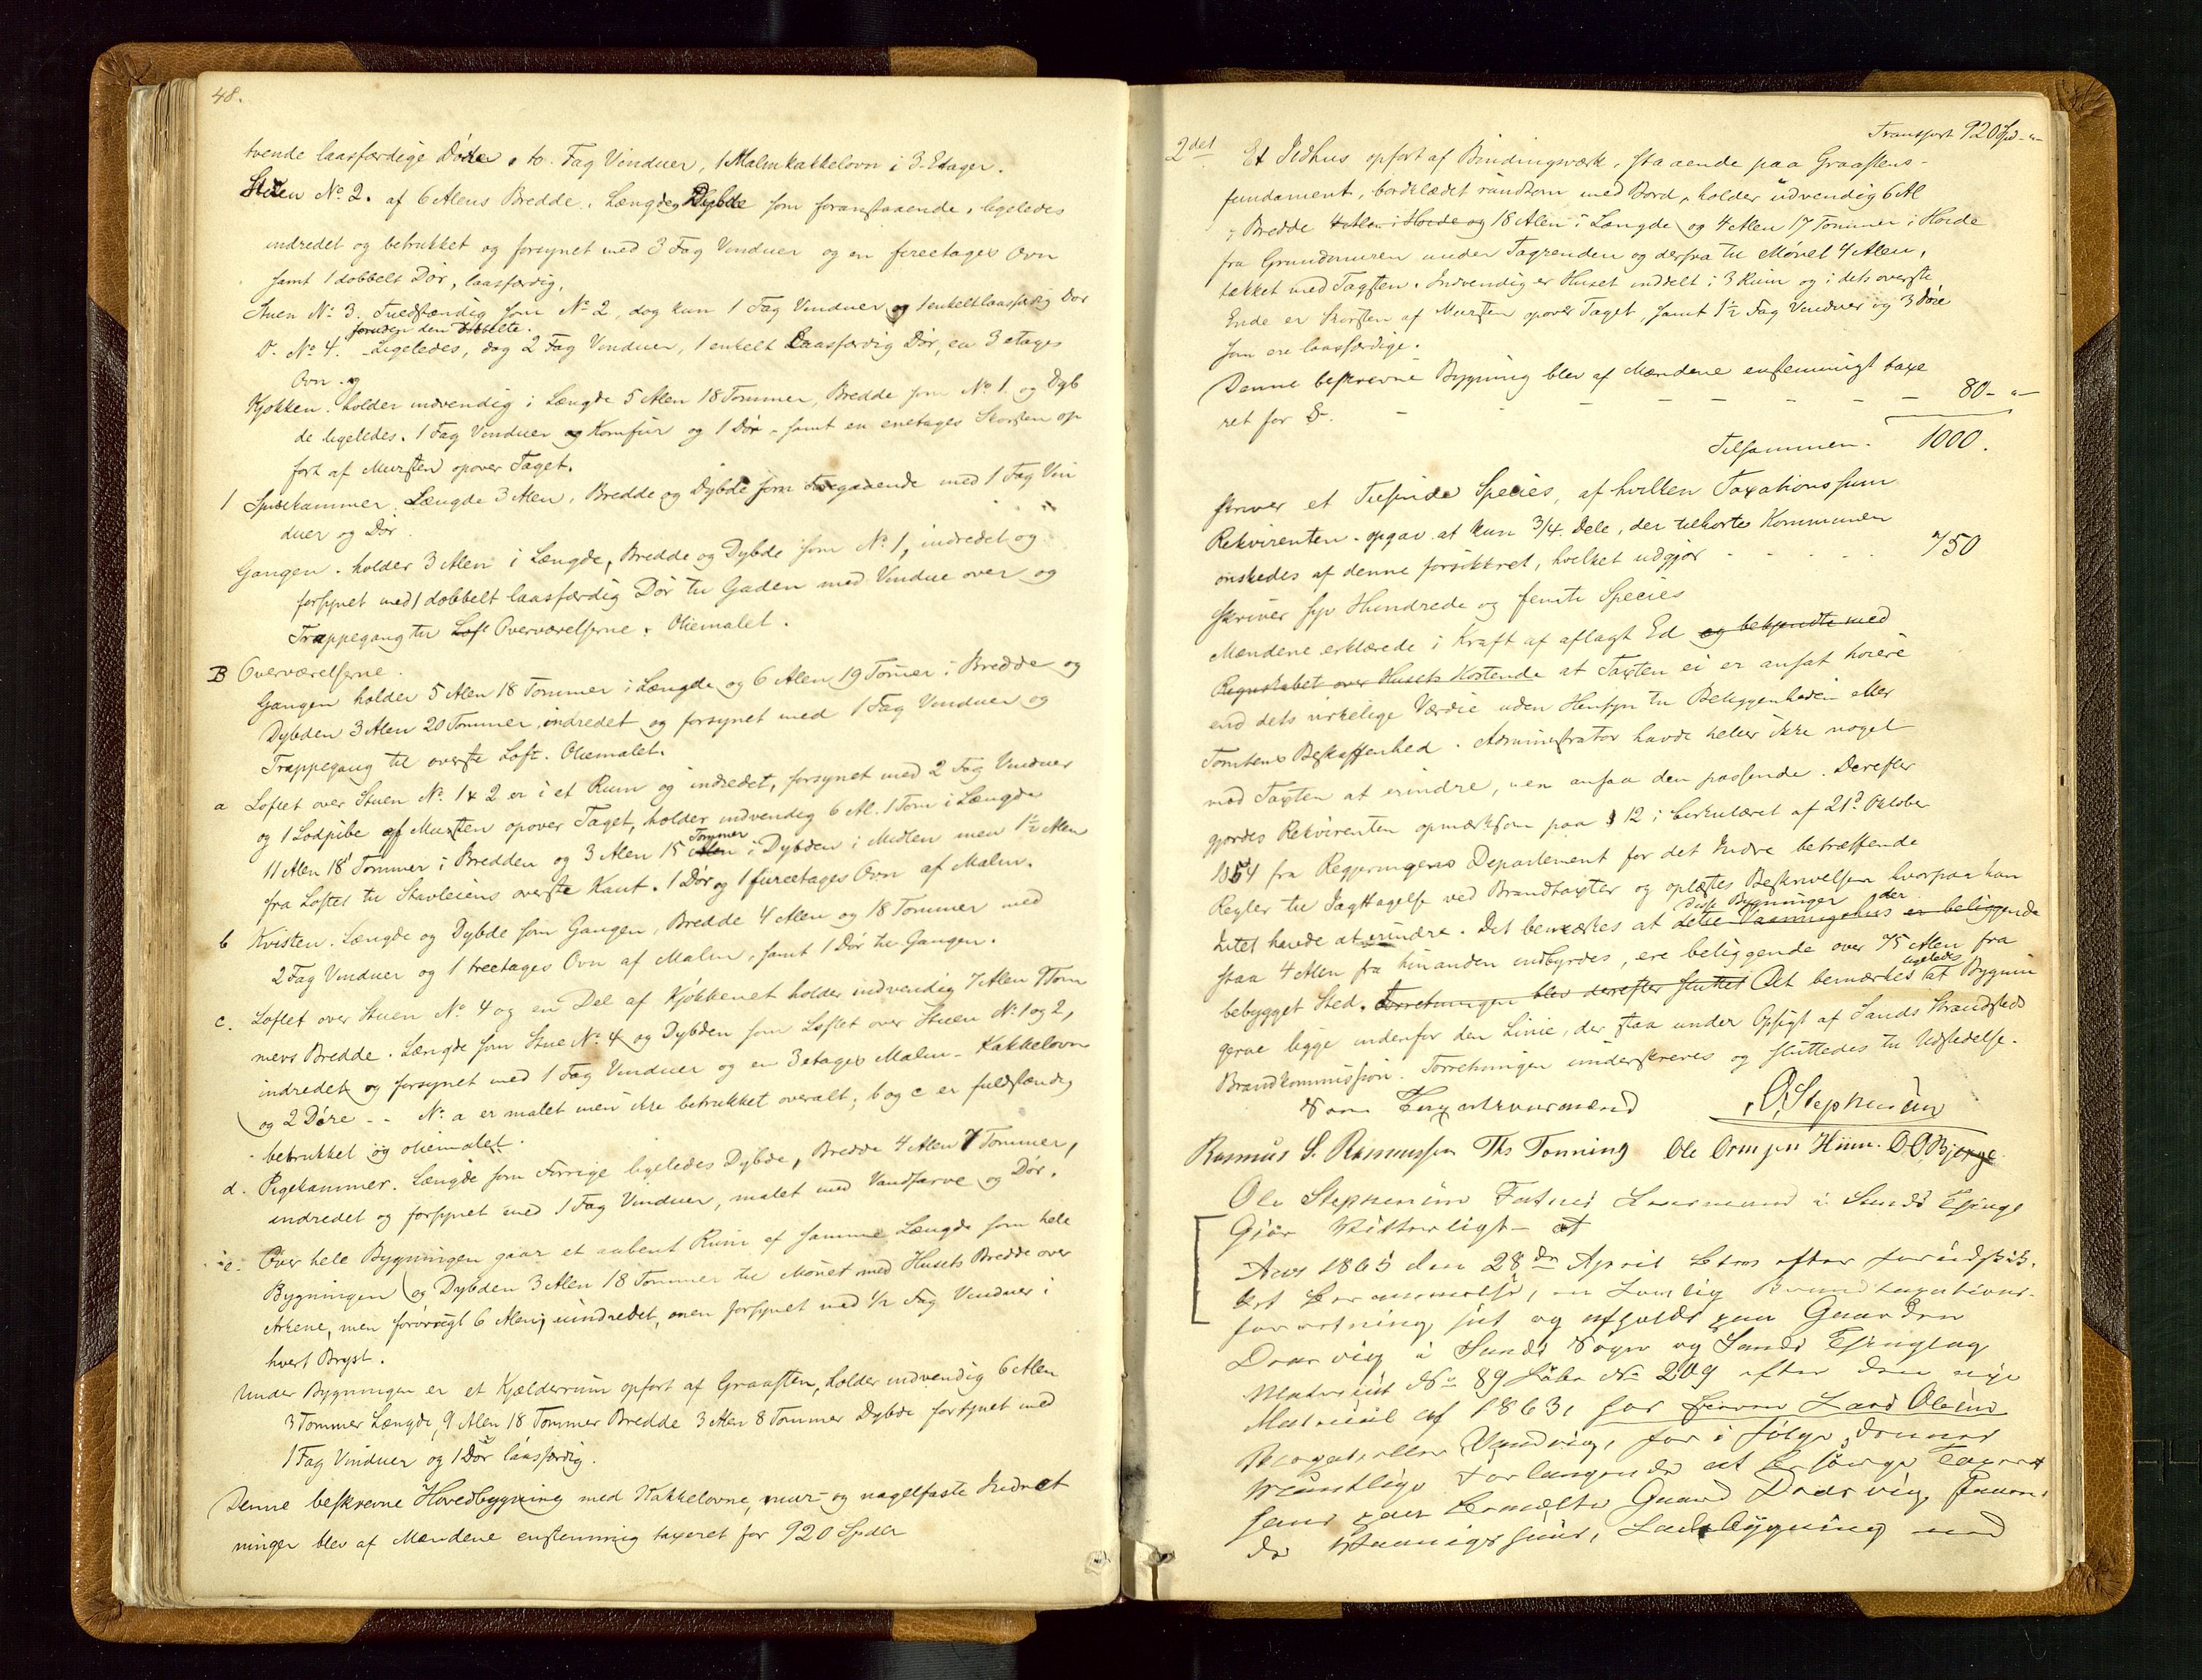 48.
tvende laasfærdige Døre, to Fag Vinduer, 1 Malmkakkelovn i 3. Etager.
Stuen No 2. af 6 Alens Bredde, Længde, Dybde som foranstaaende, ligeledes
indredet og betrukket og forsynet med 3 Fag Vinduer og en fireetages Ovn
samt 1 dobbelt Dør, laasfærdig.
Stuen No 3. Fuldstændig som No 2, dog kun 1 Fag Vinduer og 1 enkelt laasfærdig Dør
foruden den dobbelte.
D. No 4. Ligeledes, dog 2 Fag Vinduer, 1 enkelt Laasfærdig Dør, en 3 etages
Ovn. og
Kjøkken. holder indvendig i Længde 5 Alen 18 Tommer, Bredde som No 1. og Dyb
de ligeledes. 1 Fag Vinduer og Komfur og 1 Dør - samt en enetages Skorsten op
ført af Mursten opover Taget.
1 Spisekammer. Længde 3 Alen, Bredde og Dybde som Foregaaende med 1 Fag Vin
duer og Dør.
Gangen. holder 3 Alen i Længde, Bredde og Dybde som No 1, indredet og
forsynet med 1 dobbelt laasfærdig Dør til Gaden med Vindue over og
Trappegang til Loft Overværelserne. Oliemalet.
B Overværelserne.
Gangen holder 5 Alen 18 Tommer i Længde og 6 Alen 19 Tomer i Bredde og
Dybden 3 Alen 20 Tommer, indredet og forsynet med 1 Fag Vinduer og
Trappegang til øverste Loft. Oliemalet.
a Loftet over Stuen No. 1 & 2 er i et Rum og indredet, forsynet med 2 Fag Vinduer
og 1 Lodpibe af Mursten opover Taget, holder indvendig 6 Al. 1 Tom i Længde
11 Alen 18 Tommer i Bredden og 3 Alen 15 Alen Tommer i Dybden i Midten men 1½ Alen
fra Loftet til Stavleiens øverste Kant. 1 Dør og 1 fireetages Ovn af Malm.
b Kvisten. Længde og Dybde som Gangen, Bredde 4 Alen og 18 Tommer med
2 Fag Vinduer og 1 treetages Ovn af Malm, samt 1 Dør til Gangen.
c. Loftet over Stuen No 4 og en Del af Kjøkkenet holder indvendig 7 Alen 9 Tom
mers Bredde. Længde som Stue No 4 og Dybden som Loftet over Stuen No 1 og 2,
indredet og forsynet med 1 Fag Vinduer og en 3 etages Malm-Kakkelovn
og 2 Døre -- No a er malet men ikke betrukket overalt; b og c er fuldstændig
betrukket og oliemalet.
d. Pigekammer. Længde som Forrige ligeledes Dybde, Bredde 4 Alen 7 Tommer,
indredet og forsynet med 1 Fag Vinduer, malet med Vandfarve og Dør.
e. Over hele Bygningen gaar et aabent Rum af samme Længde som hele
Bygningen og Dybden 3 Alen 18 Tommer til Mønet med Husets Bredde over
Arkene, men forøvrigt 6 Alen, uindredet, men forsynet med ½ Fag Vinduer i
hvert Bryst.
Under Bygningen er et Kjælderrum opført af Graasten, holder indvendig 6 Alen
3 Tommer Længde, 9 Alen 18 Tommer Bredde 3 Alen 8 Tommer Dybde forsynet med
1 Fag Vinduer og 1 Dør laasfærdig.
Denne beskrevne Hovedbygning med Kakkelovne, mur- og nagelfaste Indret
ninger blev af Mændene enstemmig taxeret for 920 Spdlr
Transport 920 Spd - "-
2det Et Ildhus opført af Bindingsværk, staaende paa Graastens-
fundament, bordklædet rundtom med Bord, holder udvendig 6 Al
i Bredde 4 Alen i Høide og 18 Alen i Længde og 4 Alen 17 Tommer i Høide
fra Grundmuren under Tagrenden og derfra til Mønet 4 Alen,
tækket med Tagsten. Indvendig er Huset inddelt i 3 Rum og i dets øverste
Ende er Skorsten af Mursten opover Taget, samt 1½ Fag Vinduer og 3 Døre
som ere laasfærdige.
Denne beskrevne Bygning blev af Mændene enstemmigt taxe
ret for S. - - - - - - - 80 - "-
Tilsammen. 1000.
skriver et Tusinde Species, af hvilken Taxationssum
Rekvirenten opgav at kun ¾ Dele, der tilhørte Kommunen
ønskedes af denne forsikkret, hvilket udgjør - - - - - 750
skriver syv Hundrede og femti Species
Mændene erklærede i Kraft af aflagt Ed og bekjendte med
Regnskabet over Husets Kostende at Taxten ei er ansat høiere
end dets virkelige Værdie uden Hensyn til Beliggenheden eller
Tomtens Beskaffenhed. Administrator havde heller ikke noget
mod Taxten at erindre, men ansaa den passende. Derefter
gjordes Rekvirenten opmærksom paa § 12 i Cirkulæret af 21de Oktober
1854 fra Regjeringens Departement for det Indre betræffende
Regler til Iagttagelse ved Brandtaxter og oplæstes Beskrivelsen hvorpaa han
Intet havde at erindre. Det bemærkes at dette Vaaningshus er beliggende disse Bygninger der
staa 4 Alen fra hinanden indbyrdes, ere beliggende over 75 Alen fra
bebygget Sted. Forretningen blev derefter sluttet Det bemærkes ligeledes at Bygnin
gerne ligge indenfor den Linie, der staa under Opsigt af Sands Strandsteds
Brandkommission. Forretningen underskreves og sluttedes til Udstedelse.
Som Taxationsmænd O, Stephensen
Rasmus S. Rasmussen Ths Tonning Ole Ormsen Hiim. O. O. Bjerge
Ole Stephensen Lensmand i Sands Thinglag
Gjør Vitterligt - at
Aar 1865 den 28de April blev efter forudskik-
ket Berammelse, en Lovlig Brandtaxations-
forretning sat og afholdt paa Gaarden
i Sands Sogn og Sands Thinglag
Matricul No 89 Løbe No 209 efter den nye
Matricul af 1863, hos Lars Olsen
for i følge dennes
mundtlige Forlangende at
Gaard
Vaanigshuus, Ladebygning med